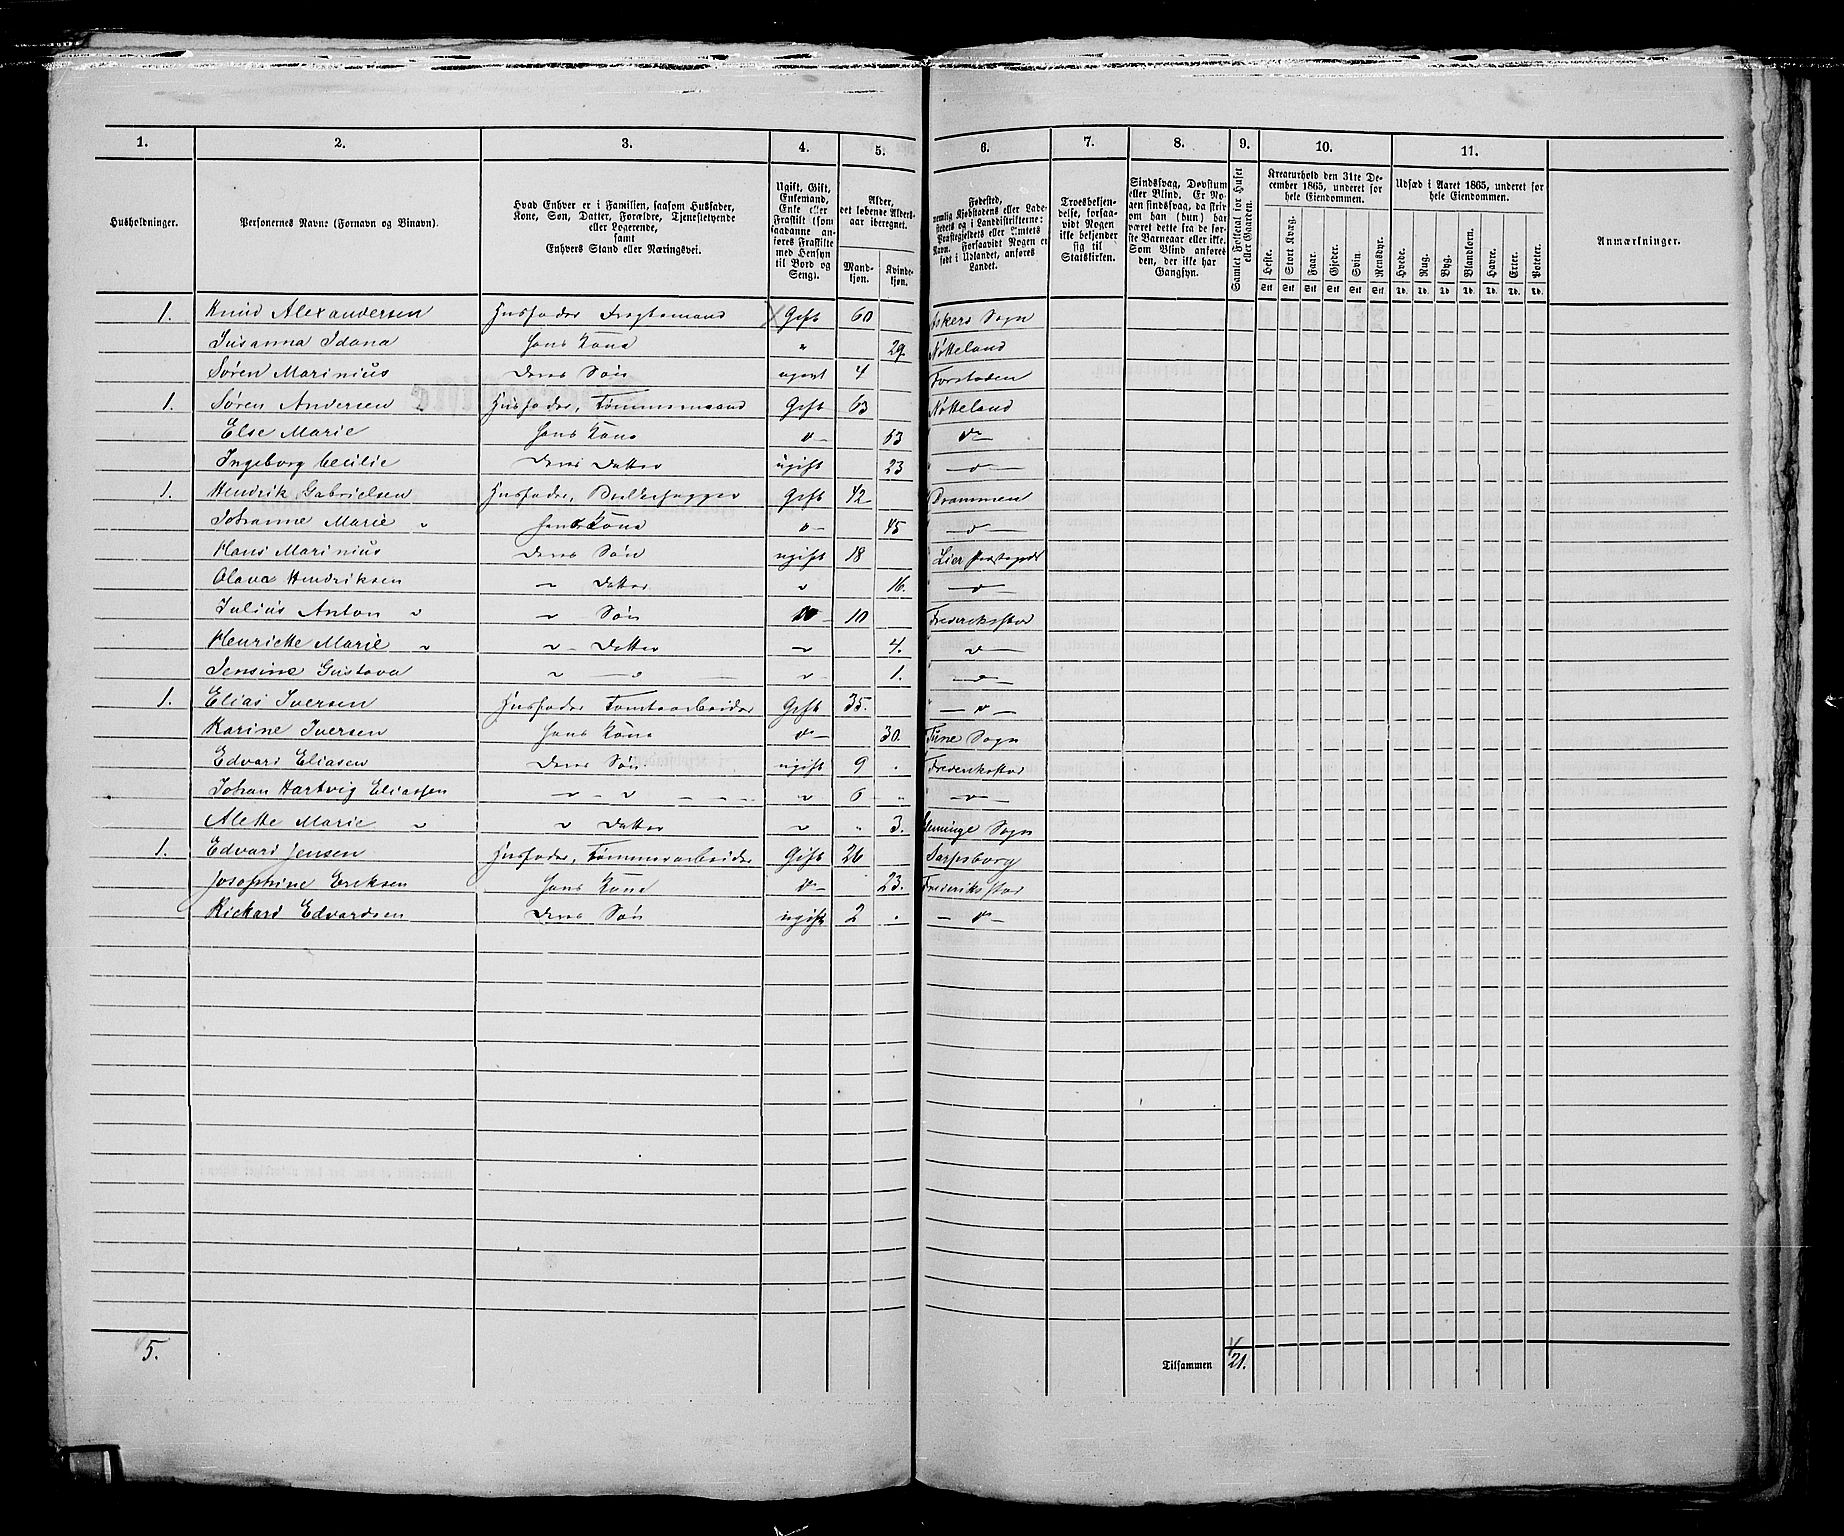 1. 2. 3. 4. 5. 6. 7. 8. 9. 10. 11.
Husholdninger.
Personernes Navne (Fornavn og Binavn).
Hvad Enhver er i Familien, saasom Husfader, Kone, Søn, Datter, Forældre, Tjenestetyende eller Logerende, samt Enhvers Stand eller Næringsvei.
Ugift, Gift, Enkemand, Enke eller Fraskilt (som saadanne anføres Fraskilte med Hensyn til Bord og Seng).
Alder, det løbende Aldersaar iberegnet.
Mandkjøn. Kvindekjøn.
Fødested, nemlig Kjøbstadens eller Ladestedets og i Landdistrikterne: Præstegjeldets eller Amtets Navn. Forsaavidt Nogen er født i Udlandet, anføres Landet.
Troesbekjendelse, forsaavidt Nogen ikke bekjender sig til Statskirken.
Sindssvag, Døvstum eller Blind. Er Nogen sindssvag, da skriv om han (hun) har været dette fra de første Barneaar eller ikke. Som Blind anføres den, der ikke har Gangsyn.
Samlet Folketal for Huset eller Gaarden.
Kreaturhold den 31te December 1865, underet for hele Eiendommen.
Heste. Stort Kvæg. Faar. Gjeder. Svin. Rensdyr.
Stk Stk Stk Stk Stk Stk
Udsæd i Aaret 1865, underet for hele Eiendommen.
Hvede. Rug. Byg. Blandkorn. Havre. Erter. Poteter.
Td. Td. Td. Td. Td. Td. Td.
Anmærkninger.
1. Knud Alexandersen Husfader Fragtemand Gift 60 Askers Sogn
Susanna Idana Hans Kone " 29. Nøtteland
Søren Marinius Deres Søn ugivt 4 Forstaden
1. Søren Andersen Husfader, Tømmermand Gift 63 Nøtteland
Else Marie Hans Kone do 53 do
Ingeborg Cecilie Deres Datter ugift 23 do
1. Hendrik Gabrielsen Husfader, Gift 42 Drammen
Johanne Marie " Hans Kone do 45 do
Hans Marinius Deres Søn ugift 18 Lier
Olava Hendriksen " Datter " 16. do
Julius Anton " " Søn " 10 Frederikstad
Henriette Marie " " Datter " 4. do
Jensine Gustava " " " 1. do
1. Elias Iversen Husfader Tomtearbeider Gift 35. do
Karine Iversen Hans Kone do 30. Tune Sogn
Edvard Eliasen Deres Søn ugift 9 Frederikstad
Johan Hartvig Eliassen " " " 6 " do
Alette Marie " " Datter " " 3. Glemminge Sogn
1. Edvard Jensen Husfader, Tømmerarbeider Gift 26 Sarpsborg
Josephine Eriksen Hans Kone do 23. Frederikstad
Rickard Edvardsen Deres Søn ugift 2 do
5.
Tilsammen 21.